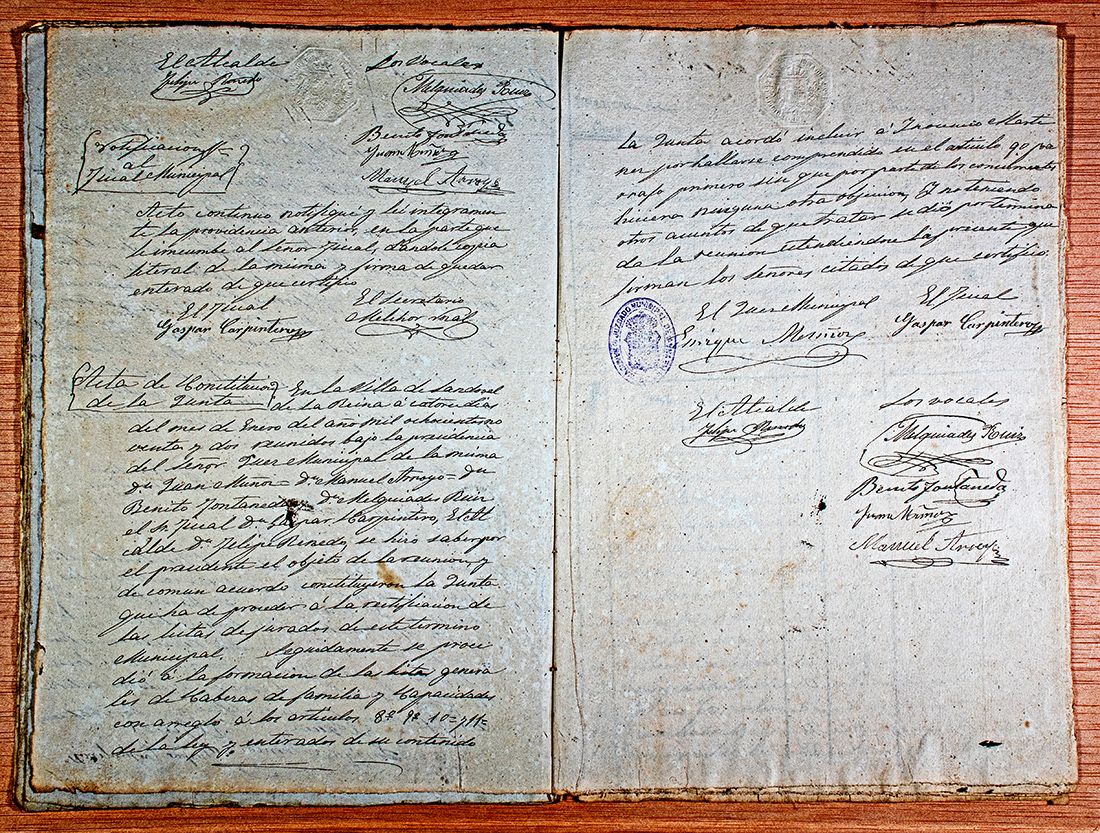 El Alcalde
Felipe Renedo
Los Vocales
Melquiades Ruiz
Benito Fontaneda
Juan Muñoz
Manuel Arroyo
Notificacion
al
Fiscal Municipal
Acto continuo notifiqué y lei integramen
te la providencia anterior, en la parte que
le incumbe al señor Fiscal, dandole copia
literal de la misma y firma de quedar
enterado de que certifico
El Fiscal
Gaspar Carpintero
El Secretario
Melchor
Acta de Constitucion
de la Junta
En la Villa de Sandoval
de la Reina á catorce dias
del mes de Enero del año mil ochocientos no
venta y dos reunidos bajo la presidencia
del Señor Juez Municipal de la misma
Dn Juan Muñoz = Dn Manuel Arroyo = Dn
Benito Fontaneda = Dn Melquiades Ruiz
el Sr. Fiscal Dn Gaspar Carpintero, El Al
calde Dn Felipe Renedo, se hizo saber por
el presidente el objeto de la reunion y
de comun acuerdo constituyeron la Junta
que ha de proceder á la rectificacion de
las listas de jurados de este termino
Municipal. Seguidamente se proce
dió á la formacion de las listas genera
les de Cabezas de familia y Capacidades
con arreglo á los articulos 8º 9º 10 = y 11 =
de la ley y enterados de su contenido
La Junta acordó incluir á Marti
nez por hallarse comprendido en el articulo 90 pa
rrafo primero sin que por parte de los concurrentes
hiciera ninguna otra objecion, Y no teniendo
otros asuntos de que tratar se dió por termina
da la reunion estendiendose la presente que
firman los señores citados de que certifico.
El Juez Municipal
Enrique Muñoz
El Fiscal
Gaspar Carpintero
JUZGADO MUNICIPAL DE
El Alcalde
Felipe Renedo
Los vocales
Melquiades Ruiz
Benito Fontaneda
Juan Muñoz
Manuel Arroyo